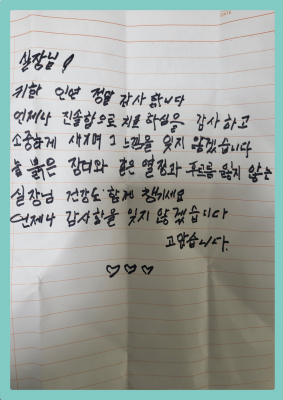 실장님!
귀한 인연 정말 감사 합니다
언제나 진솔함으로 치료 하심을 감사 하고
소중하게 새기며 그 느낌을 잊지 않겠습니다
늘 붉은 장미와 같은 열정과 푸르름을 잃지 않는
실장님 건강도 함께 챙기세요
언제나 감사함을 잊지 않겠습니다
고맙습니다.